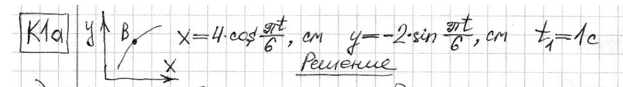 К1а y B x x=4·cos πt/6, см y=-2·sin πt/6, см t₁=1с
Решение